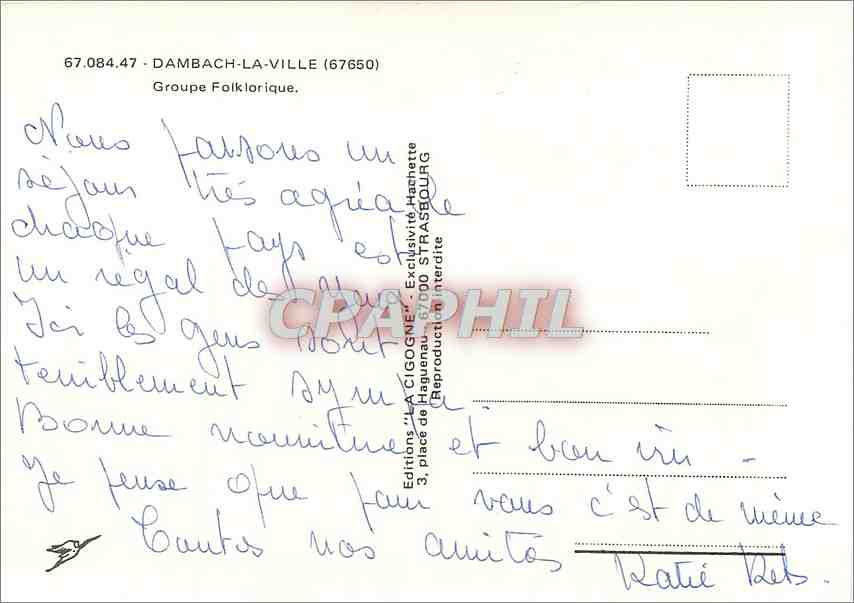 67.084.47 - DAMBACH-LA-VILLE (67650)
Groupe Folklorique.
Nous passons un
séjour très agréable
chaque pays est
un régal des yeux
Ici les gens sont
terriblement sympa.
Bonne nourriture et bon vin -
Je pense que pour vous c'est de même
Toutes nos amitiés
Katie
Editions "LA CIGOGNE" - Exclusivité Hachette
3, place de Haguenau - 67000 STRASBOURG
Reproduction interdite
CPAPHIL